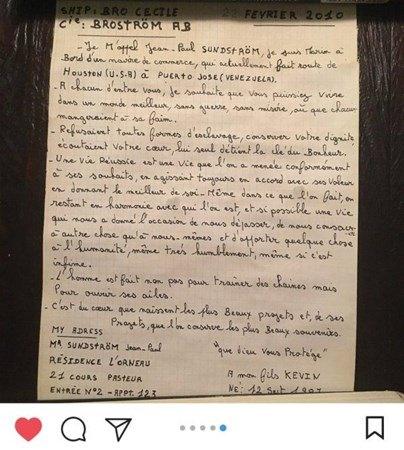 SHIP: BRO CECILE 22 FEVRIER 2010
Cie: BROSTRÖM AB
- Je M'appel Jean-Paul SUNDSTRÖM, je suis Marin à
Bord d'un navire de commerce, qui actuellement fait route de
HOUSTON (U.S.A) à PUERTO JOSE (VENEZUELA).
- A chacun d'entre vous, Je souhaite que vous puissiez vivre
dans un monde meilleur, sans guerre, sans misère, où que chacun
mangeraient à sa faim.
- Refusaient toutes formes d'esclavage, conserver votre dignité,
écoutaient votre cœur, lui seul détient la clé du Bonheur.
- Une Vie Réussie est une Vie que l'on a menée conformément
à ses souhaits, en agissant toujours en accord avec ses valeurs
en donnant le meilleur de soi-même dans ce que l'on fait, en
restant en harmonie avec qui l'on est, et si possible une Vie
qui nous a donné l'occasion de nous dépasser, de nous consacrer
à autre chose qu'à nous-mêmes et d'apporter quelque chose
à l'humanité, même très humblement, même si c'est
infime.
- L'homme est fait non pas pour trainer des chaines mais
Pour ouvrir ses ailes.
- C'est du cœur que naissent les plus Beaux projets et, de ses
Projets, que l'on conserve les plus Beaux souvenirs.
MY ADRESS
Mr SUNDSTRÖM Jean-Paul "que dieu Vous Protège"
RÉSIDENCE L'ORNEAU
21 COURS PASTEUR A mon fils KEVIN
ENTRÉE N°2 - APPT. 123 NÉ: 12 Sept